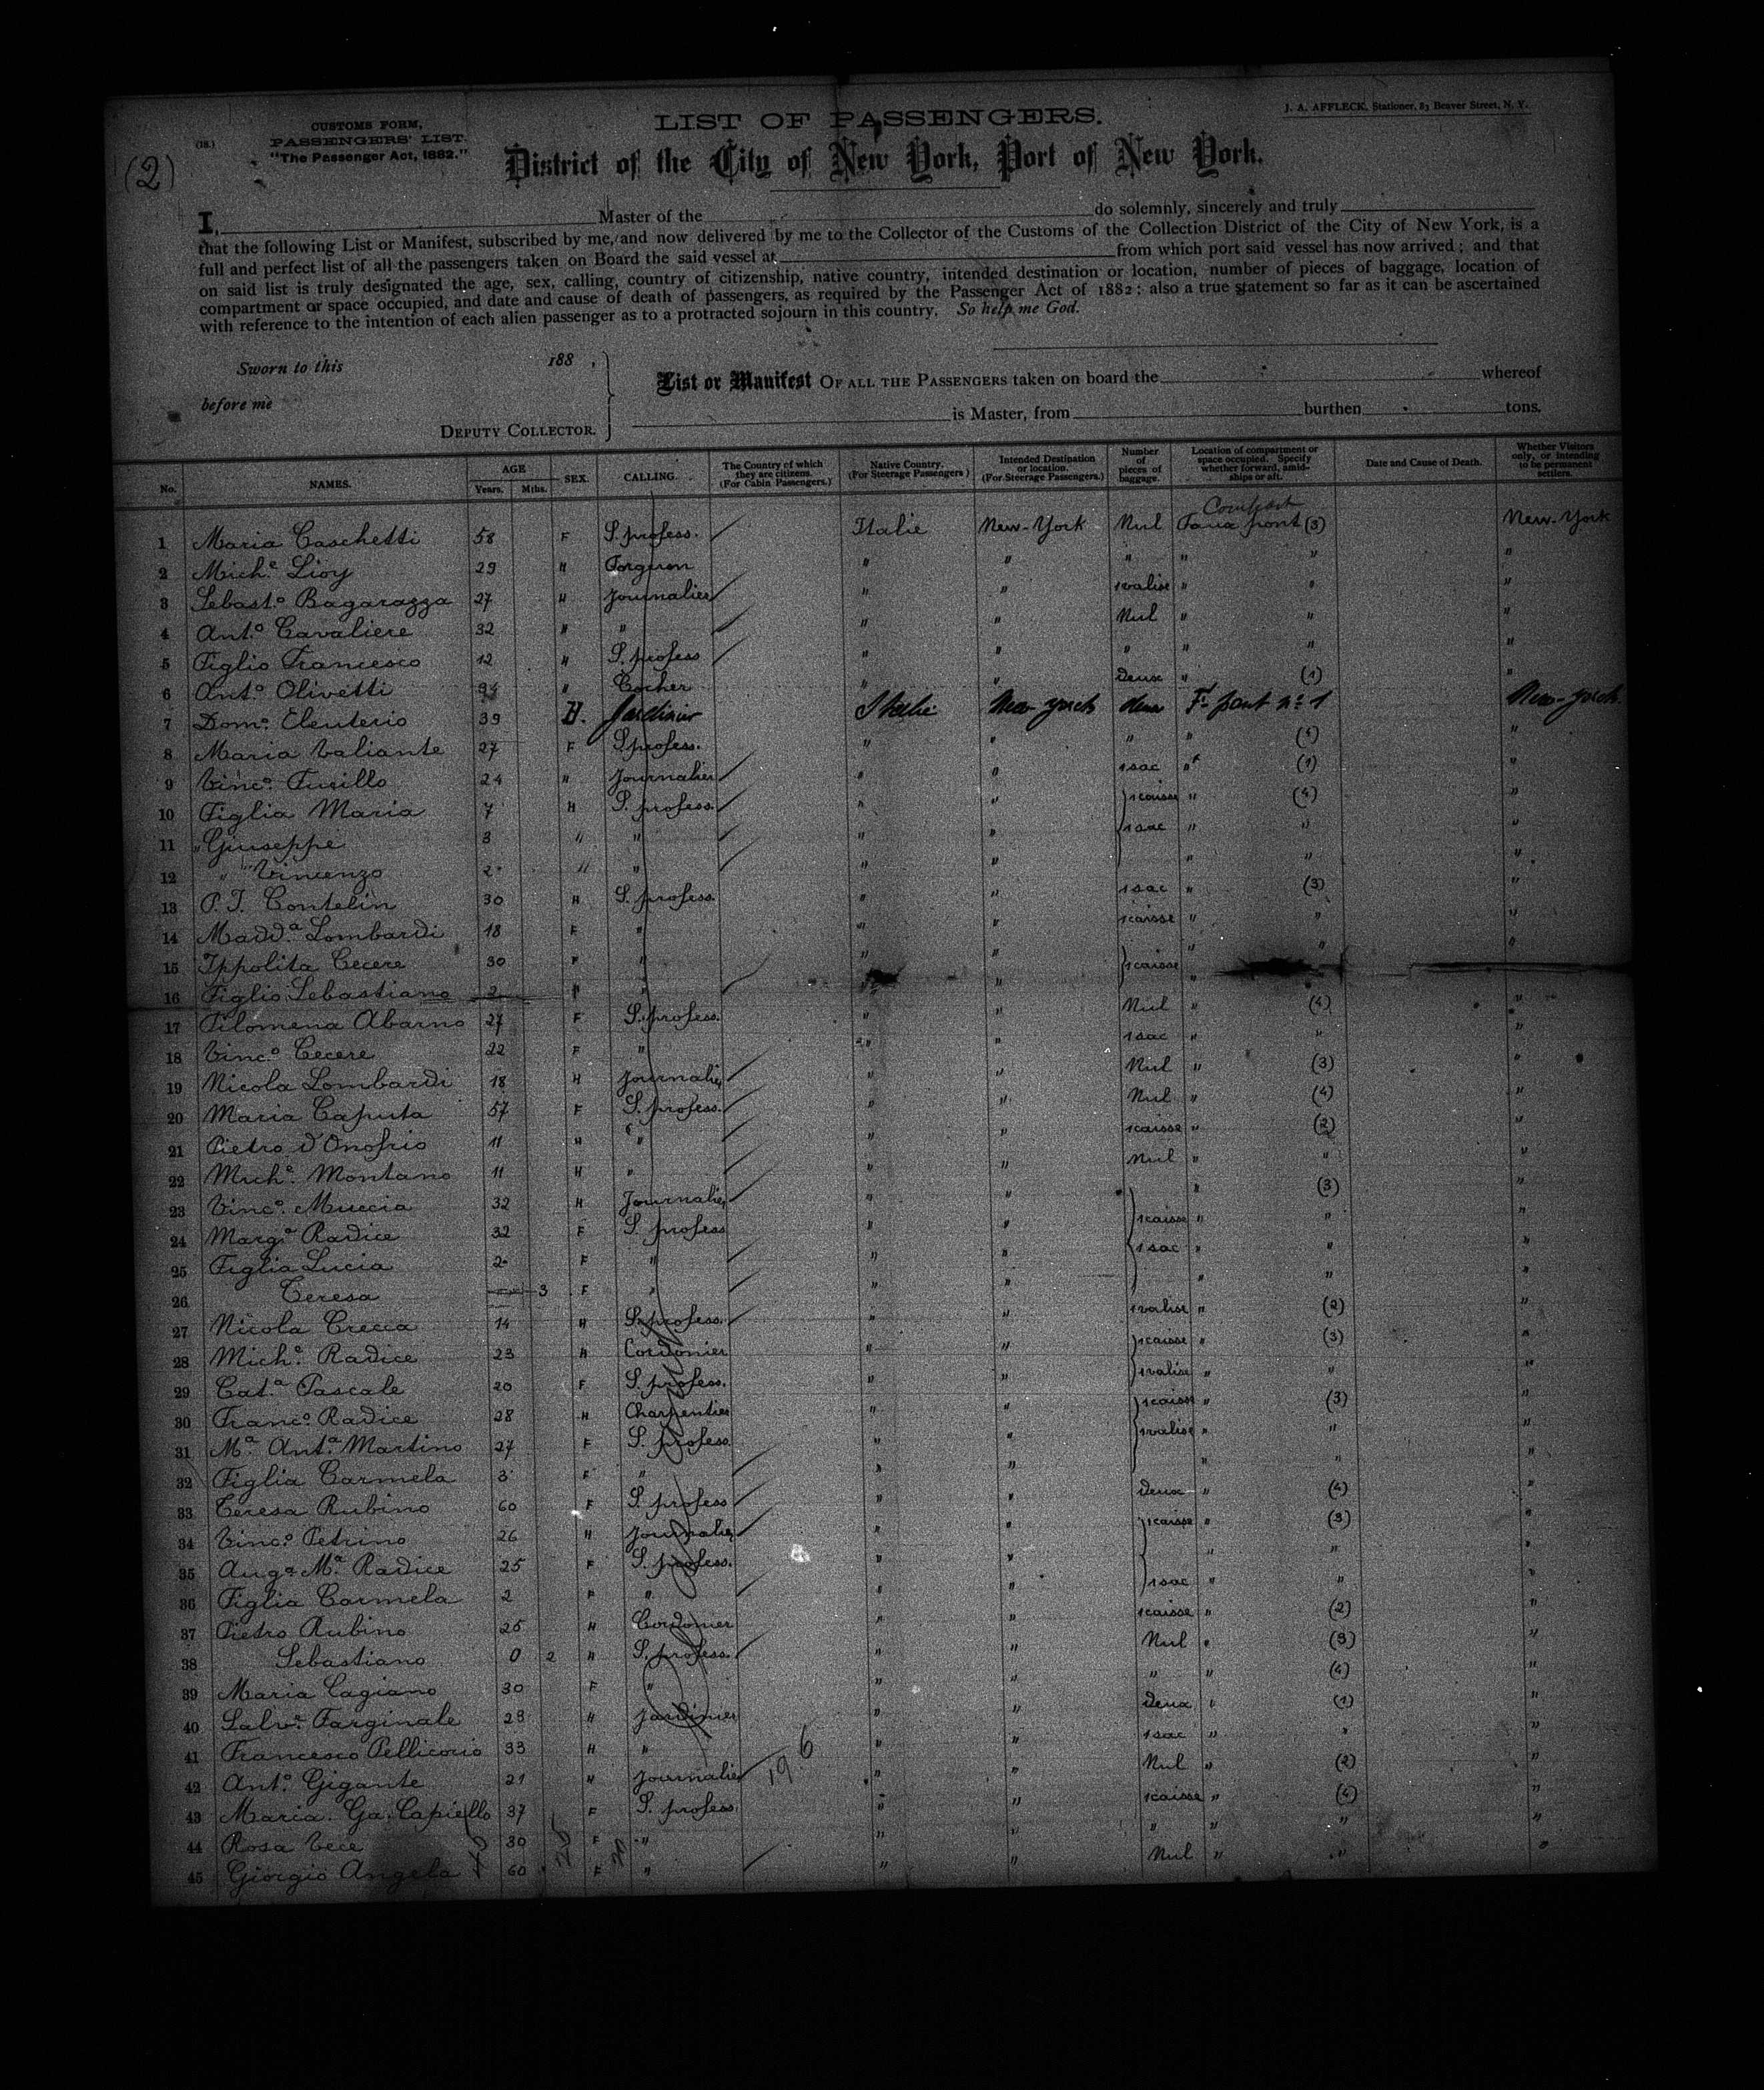 J. A. AFFLECK, Stationer, 83 Beaver Street, N. Y.
(2)
CUSTOMS FORM,
PASSENGERS' LIST.
"The Passenger Act, 1882."
LIST OF PASSENGERS.
District of the City of New York, Port of New York.
I, Master of the do solemnly, sincerely and truly
that the following List or Manifest, subscribed by me, and now delivered by me to the Collector of the Customs of the Collection District of the City of New York, is a
full and perfect list of all the passengers taken on Board the said vessel at from which port said vessel has now arrived; and that
on said list is truly designated the age, sex, calling, country of citizenship, native country, intended destination or location, number of pieces of baggage, location of
compartment or space occupied, and date and cause of death of passengers, as required by the Passenger Act of 1882: also a true statement so far as it can be ascertained
with reference to the intention of each alien passenger as to a protracted sojourn in this country. So help me God.
Sworn to this 188 ,
before me
DEPUTY COLLECTOR.
List or Manifest OF ALL THE PASSENGERS taken on board the whereof
is Master, from burthen tons.
No. NAMES. AGE Years. Mths. SEX. CALLING. The Country of which they are citizens. (For Cabin Passengers.) Native Country. (For Steerage Passengers) Intended Destination or location. (For Steerage Passengers.) Number of pieces of baggage. Location of compartment or space occupied. Specify whether forward, amid-ships or aft. Date and Cause of Death. Whether Visitors only, or intending to be permanent settlers.
1 Maria Caschetti 58 F S. profess. Italie New-York Nul (3) New-York
2 Mich.e Lioy 29 H Forgeron " " " " " "
3 Sebast.o Bagarazza 27 H Journalier " " 1 valise " " "
4 Ant.o Cavaliere 32 " " " " Nul " " "
5 Figlio Francesco 12 H S. profess " " " " " "
6 Ant.o Olivetti " Cocher " " Deux " (1) "
7 Dom.o Eleuterio 39 H. Jardinier Italie New-York deux pont n: 1 New-York
8 Maria Valiante 27 F S. profess. " " " " (4) "
9 Vinc.o Fusillo 24 " Journalier " " 1 sac " (1) "
10 Figlia Maria 7 H S. profess. " " 1 caisse " (4) "
11 " Giuseppe 3 " " " " 1 sac " " "
12 " Vincenzo 2 " " " " " " "
13 P. J. Contelin 30 H S. profess. " " 1 sac " (3) "
14 Madd.a Lombardi 18 F " " " 1 caisse " " "
15 Ippolita Cecere 30 F " " " 1 caisse " " "
16 Figlio Sebastiano 2 H " " " " "
17 Filomena Abarno 27 F S. profess. " " Nul " (4) "
18 Vinc.o Cecere 22 F " " " 1 sac " " "
19 Nicola Lombardi 18 H Journalier " " Nul " (3) "
20 Maria Caputa 57 F S. profess. " " Nul " (4) "
21 Pietro d'Onofrio 11 H " " " 1 caisse " (2) "
22 Mich.e Montano 11 H " " " Nul " " "
23 Vinc.o Muccia 32 H Journalier " " " (3) "
24 Marg.a Radice 32 F S. profess " " 1 caisse " " "
25 Figlia Lucia 2 F " " " 1 sac " " "
26 Teresa 3 F " " " " " "
27 Nicola Crecca 14 H S. profess. " " 1 valise " (2) "
28 Mich.e Radice 23 H Cordonier " " 1 caisse " (3) "
29 Cat.a Pascale 20 F S. profess. " " 1 valise " " "
30 Franc.o Radice 28 H Charpentier " " 1 caisse " (3) "
31 M.a Ant.a Martino 27 F S. profess. " " 1 valise " " "
32 Figlia Carmela 3 F " " " " " "
33 Teresa Rubino 60 F S. profess " " Deux " (4) "
34 Vinc.o Petrino 26 H Journalier " " 1 caisse " (3) "
35 Ang.a M.a Radice 25 F S. profess. " " " " "
36 Figlia Carmela 2 F " " " 1 sac " " "
37 Pietro Rubino 25 H Cordonier " " 1 caisse " (2) "
38 Sebastiano 0 2 H S. profess. " " Nul " (3) "
39 Maria Cagiano 30 F " " " " " (4) "
40 Salv.e Farginale 28 H Jardinier " " Deux " (1) "
41 Francesco Pellicorio 33 H " " " 1 sac " " "
42 Ant.o Gigante 21 H Journalier 19 6 " " Nul " (2) "
43 Maria Ga. Capiello 37 F S. profess. " " 1 caisse " (4) "
44 Rosa Vece 30 F " " " " " " "
45 Giorgio Angela 60 F " " " Nul " " "